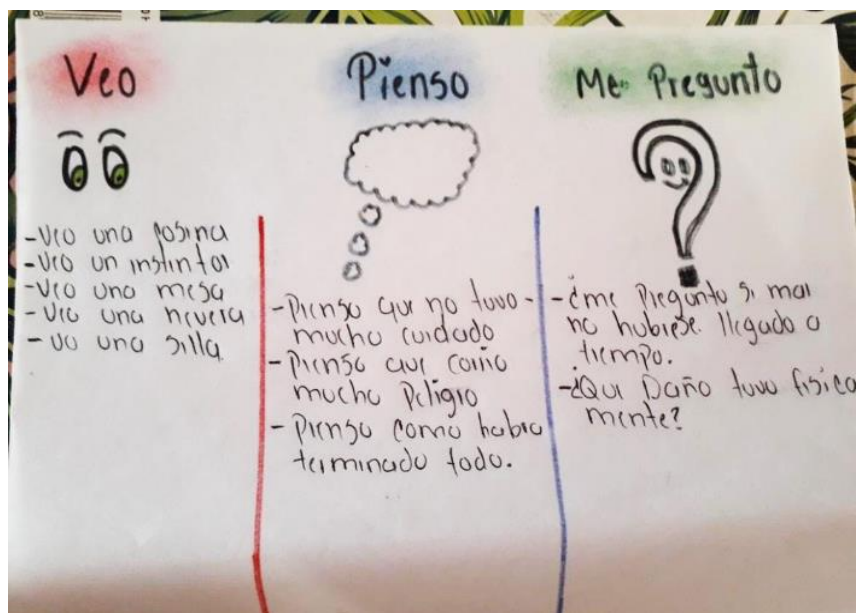 Veo
- Veo una cosina
- Veo un instintor
- Veo una mesa
- Veo una nevera
- veo una silla
Pienso
- Pienso que no tuvo
mucho cuidado
- Pienso que corrio
mucho Peligro
- Pienso como habra
terminado todo.
Me Pregunto
- ¿me Pregunto si mai
no hubiese llegado a
tiempo.
- ¿Que Daño tuvo fisica
mente?